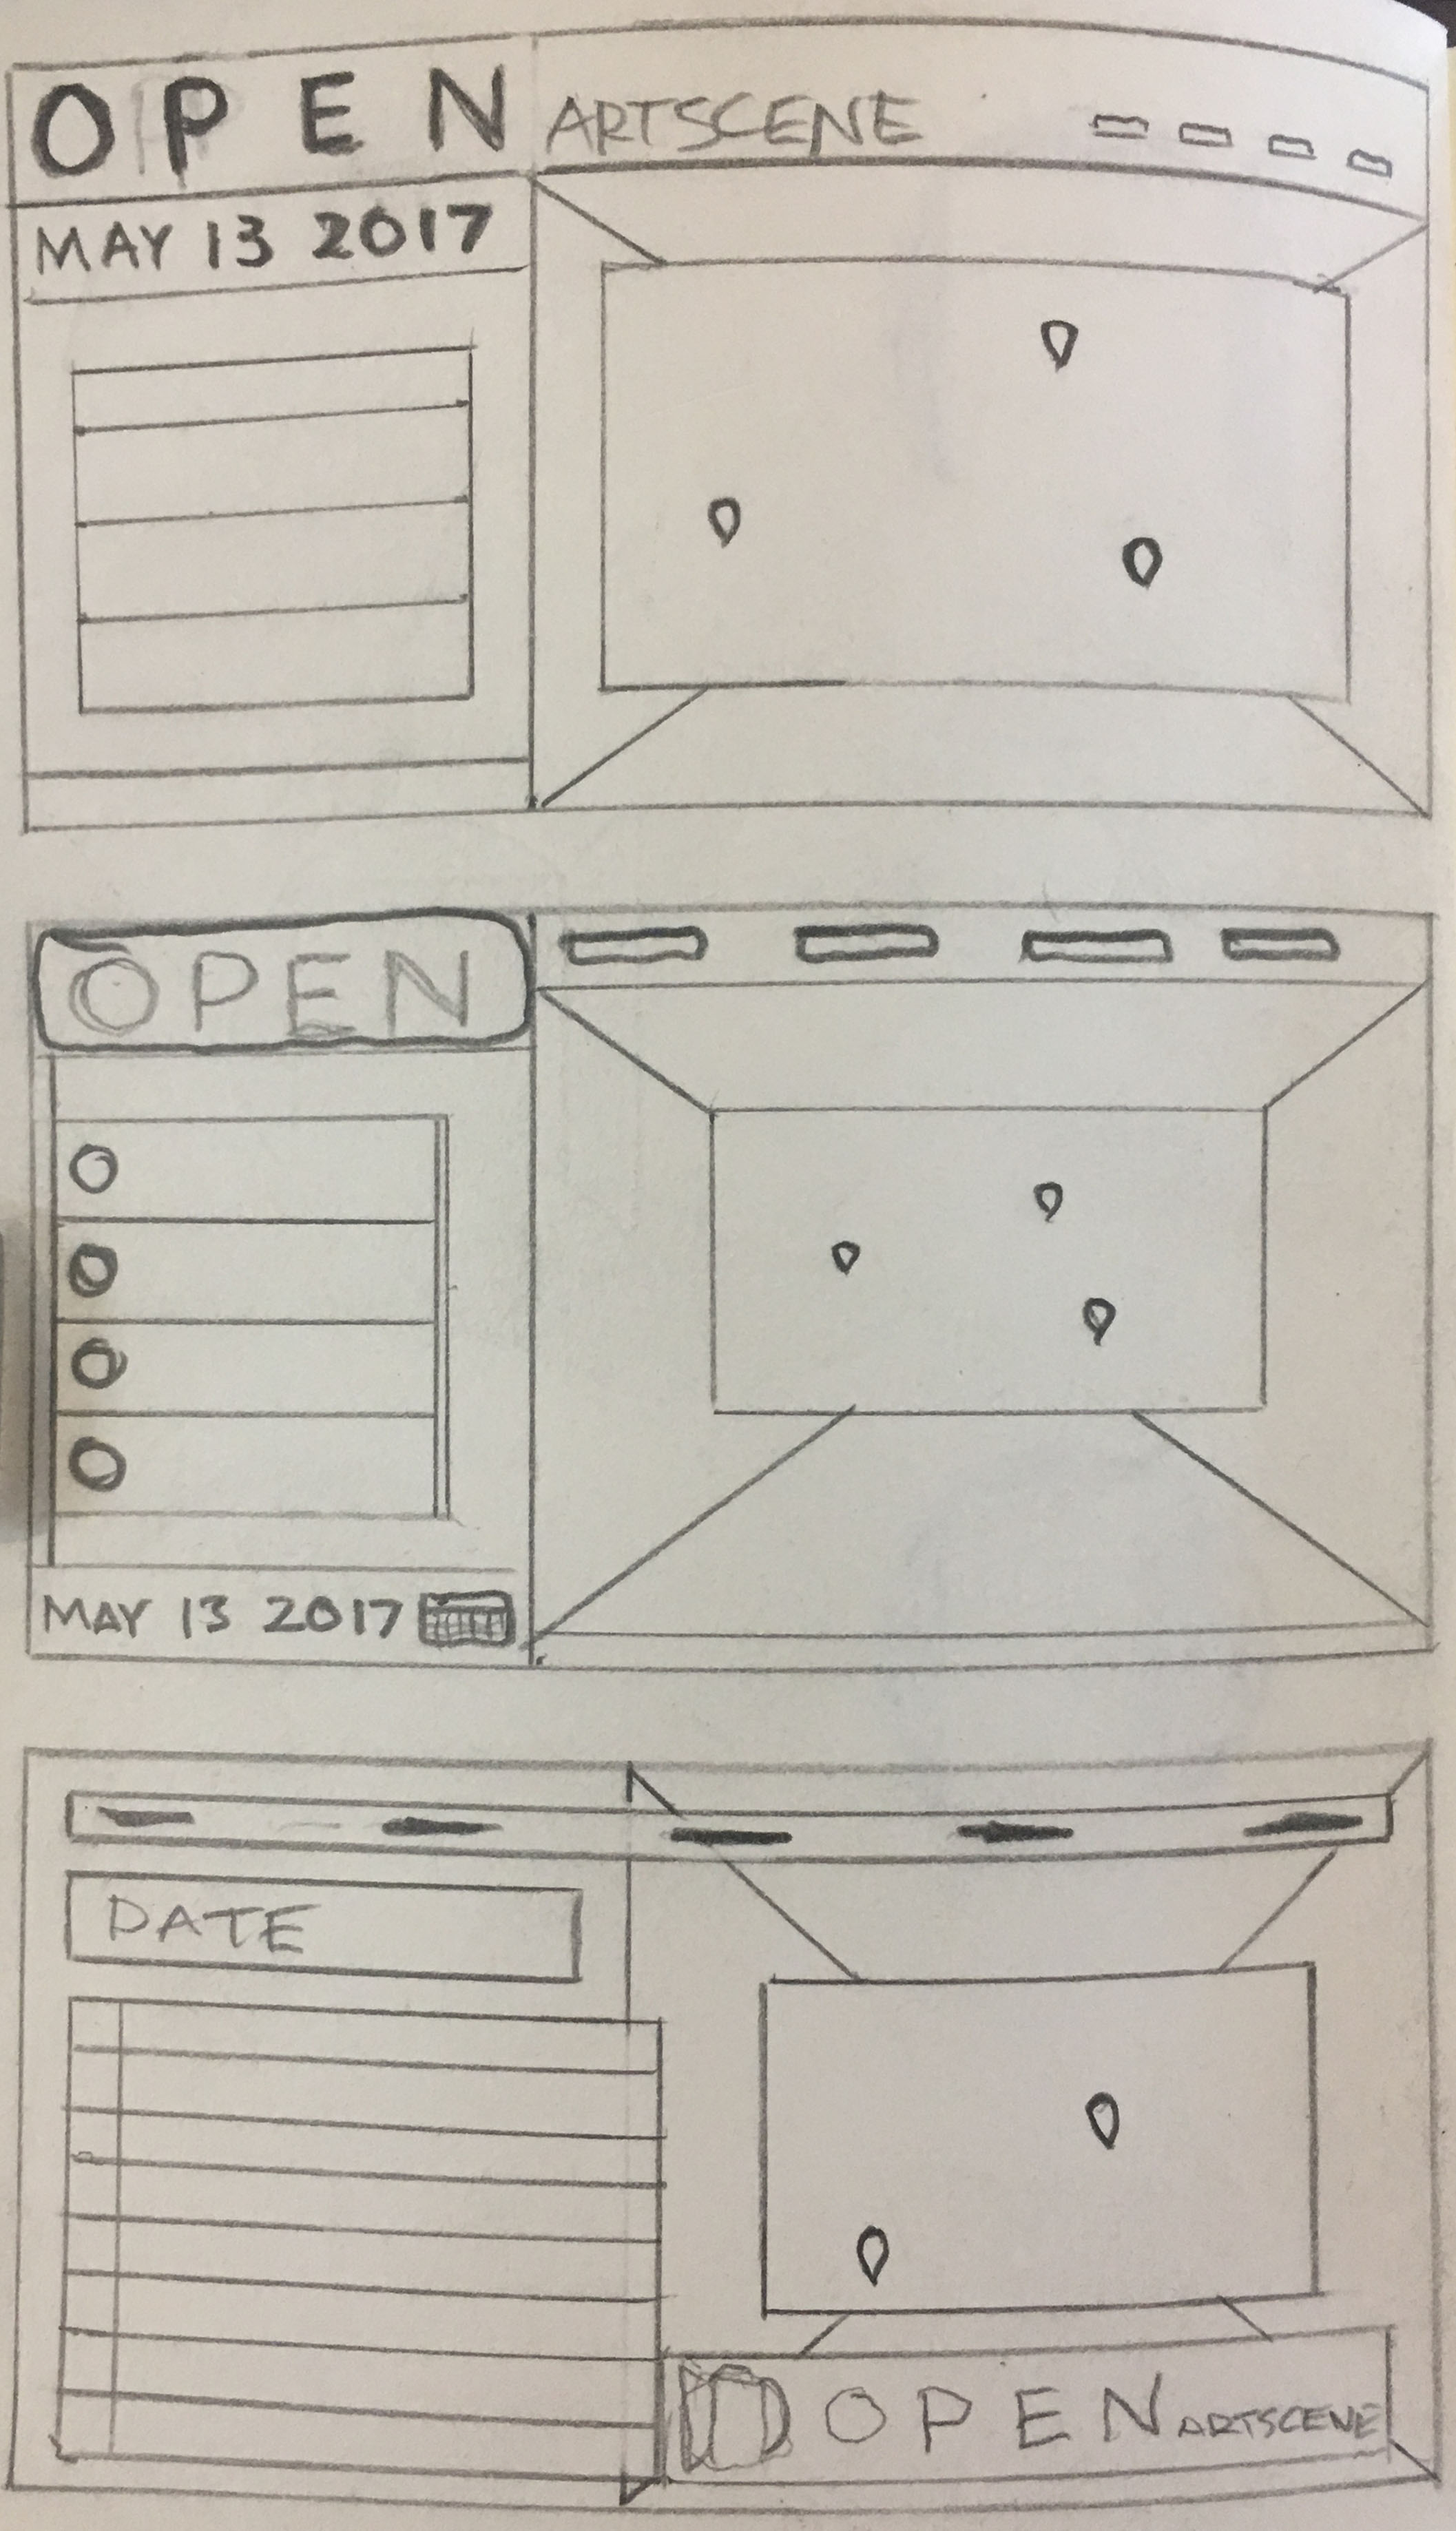 OPEN ARTSCENE
MAY 13 2017
OPEN
MAY 13 2017
DATE
OPEN ARTSCENE